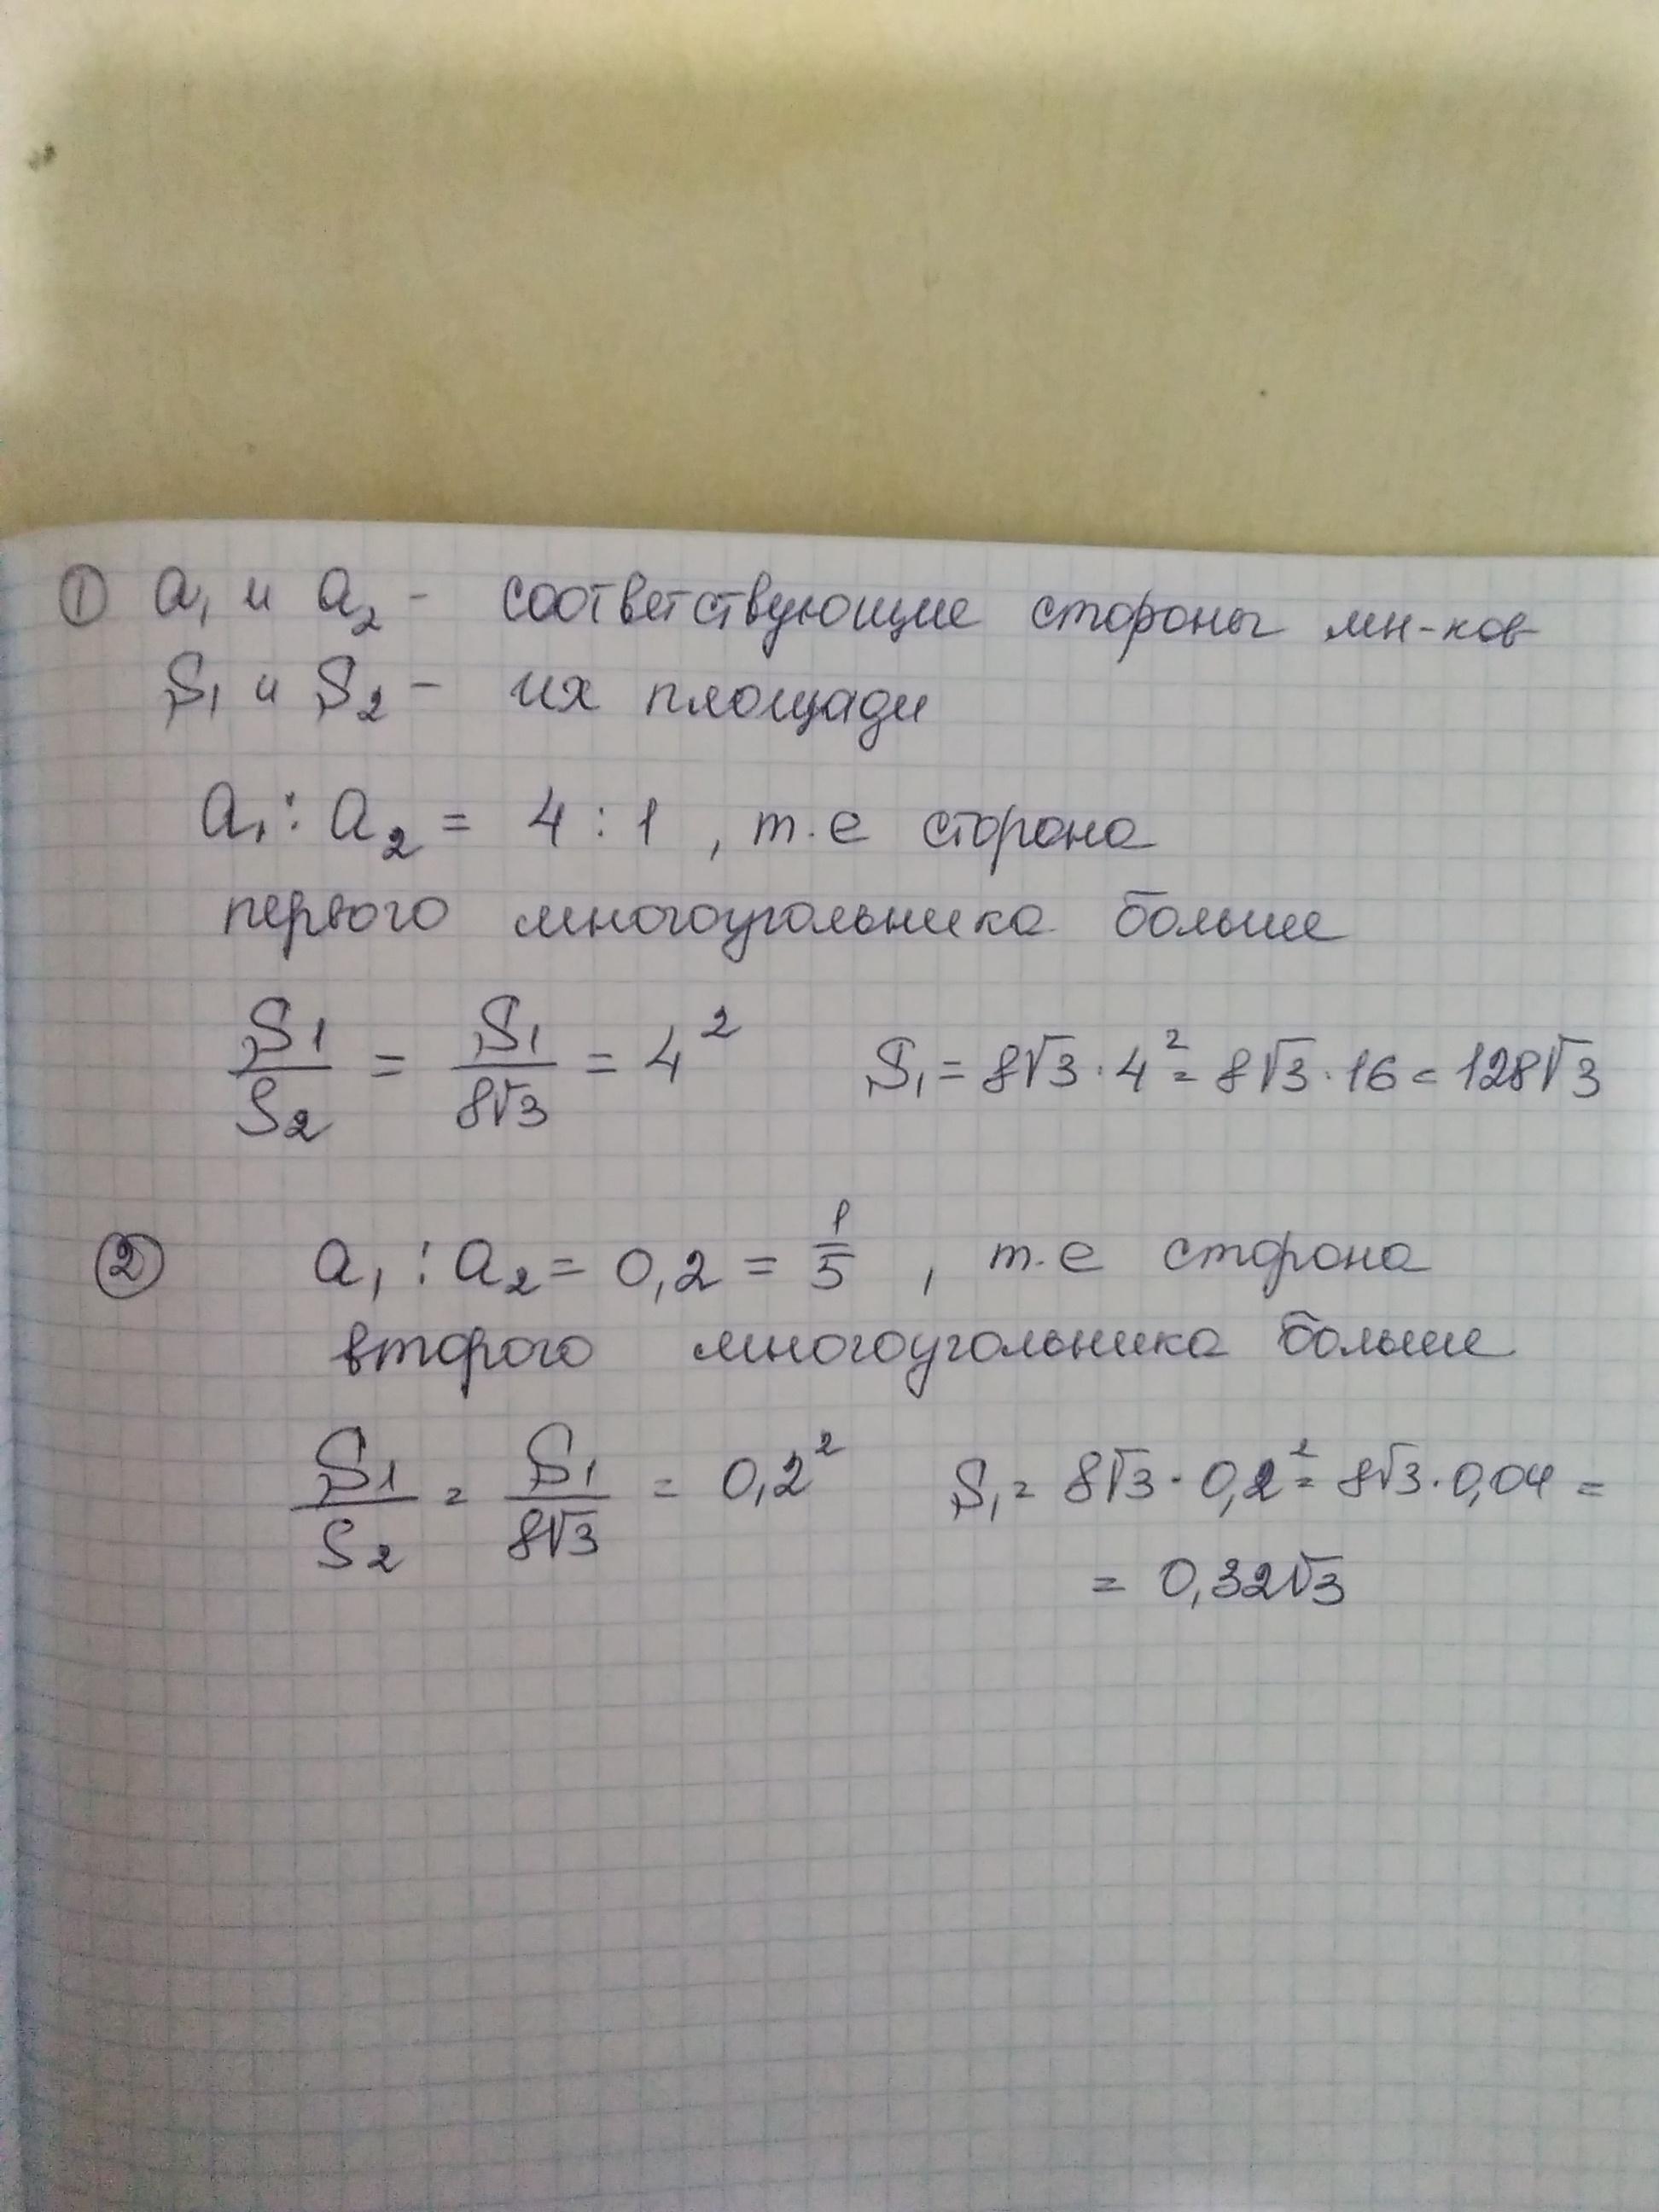 ① a₁ и a₂ - соответствующие стороны мн-ков
S₁ и S₂ - их площади
a₁ : a₂ = 4 : 1 , т.е сторона
первого многоугольника больше
S₁/S₂ = S₁/8√3 = 4² S₁ = 8√3 · 4² = 8√3 · 16 = 128√3
② a₁ : a₂ = 0,2 = 1/5 , т.е сторона
второго многоугольника больше
S₁/S₂ = S₁/8√3 = 0,2² S₁ = 8√3 · 0,2² = 8√3 · 0,04 =
= 0,32√3